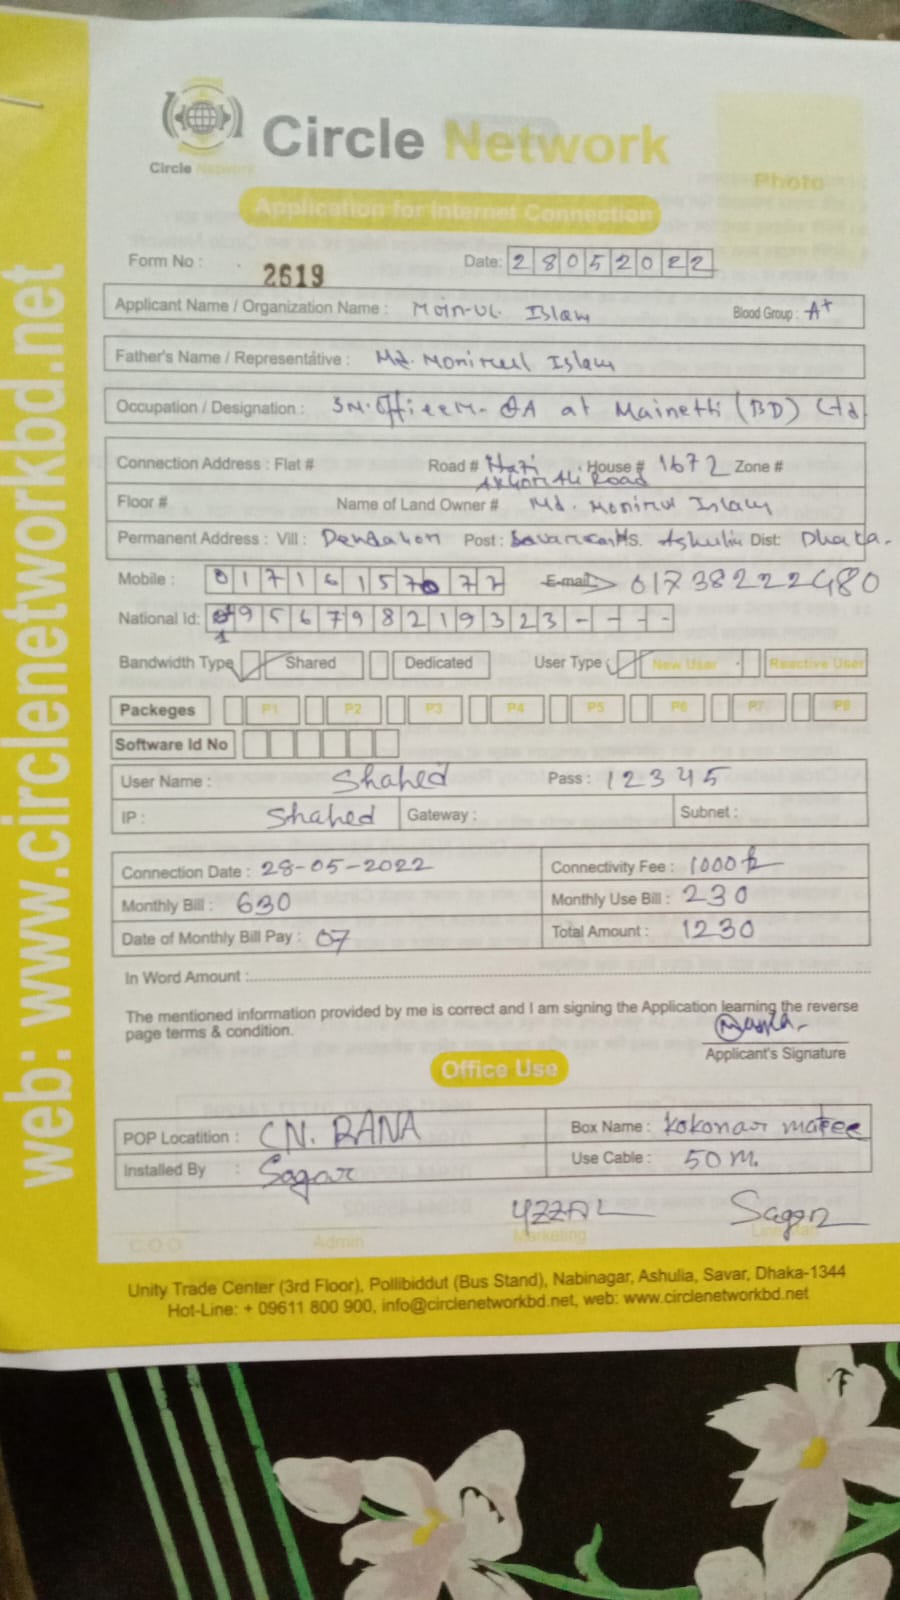 Circle Network
Circle Network
Photo
Application for Internet Connection
Form No : 2619 Date: 28052022
Applicant Name / Organization Name : Moin-Ul. Islam Blood Group : A+
Father's Name / Representative : Md. Monirul Islam
Occupation / Designation : SN. Officer. QA at Mainetti (BD) Ltd.
Connection Address : Flat # Road # Hazi House # 1672 Zone #
Ali Road
Floor # Name of Land Owner # Md. Monirul Islam
Permanent Address : Vill : Dendabor Post : P.S. Ashulia Dist: Dhaka.
Mobile : E-mail: 01738222480
National Id: 95679821 9323 - - - -
Bandwidth Type Shared Dedicated User Type New User Reactive User
Packeges P1 P2 P3 P4 P5 P6 P7 P8
Software Id No
User Name : Shahed Pass : 12345
IP : Shahed Gateway : Subnet :
Connection Date : 28-05-2022 Connectivity Fee : 1000
Monthly Bill : 630 Monthly Use Bill : 230
Date of Monthly Bill Pay : 07 Total Amount : 1230
In Word Amount :
The mentioned information provided by me is correct and I am signing the Application learning the reverse
page terms & condition.
Applicant's Signature
Office Use
POP Locatition : CN. RANA Box Name : Kokonar
Installed By : Sagar Use Cable : 50 m.
C.O.O Admin Marketing Line Man
Unity Trade Center (3rd Floor), Pollibiddut (Bus Stand), Nabinagar, Ashulia, Savar, Dhaka-1344
Hot-Line: + 09611 800 900, info@circlenetworkbd.net, web: www.circlenetworkbd.net
web: www.circlenetworkbd.net